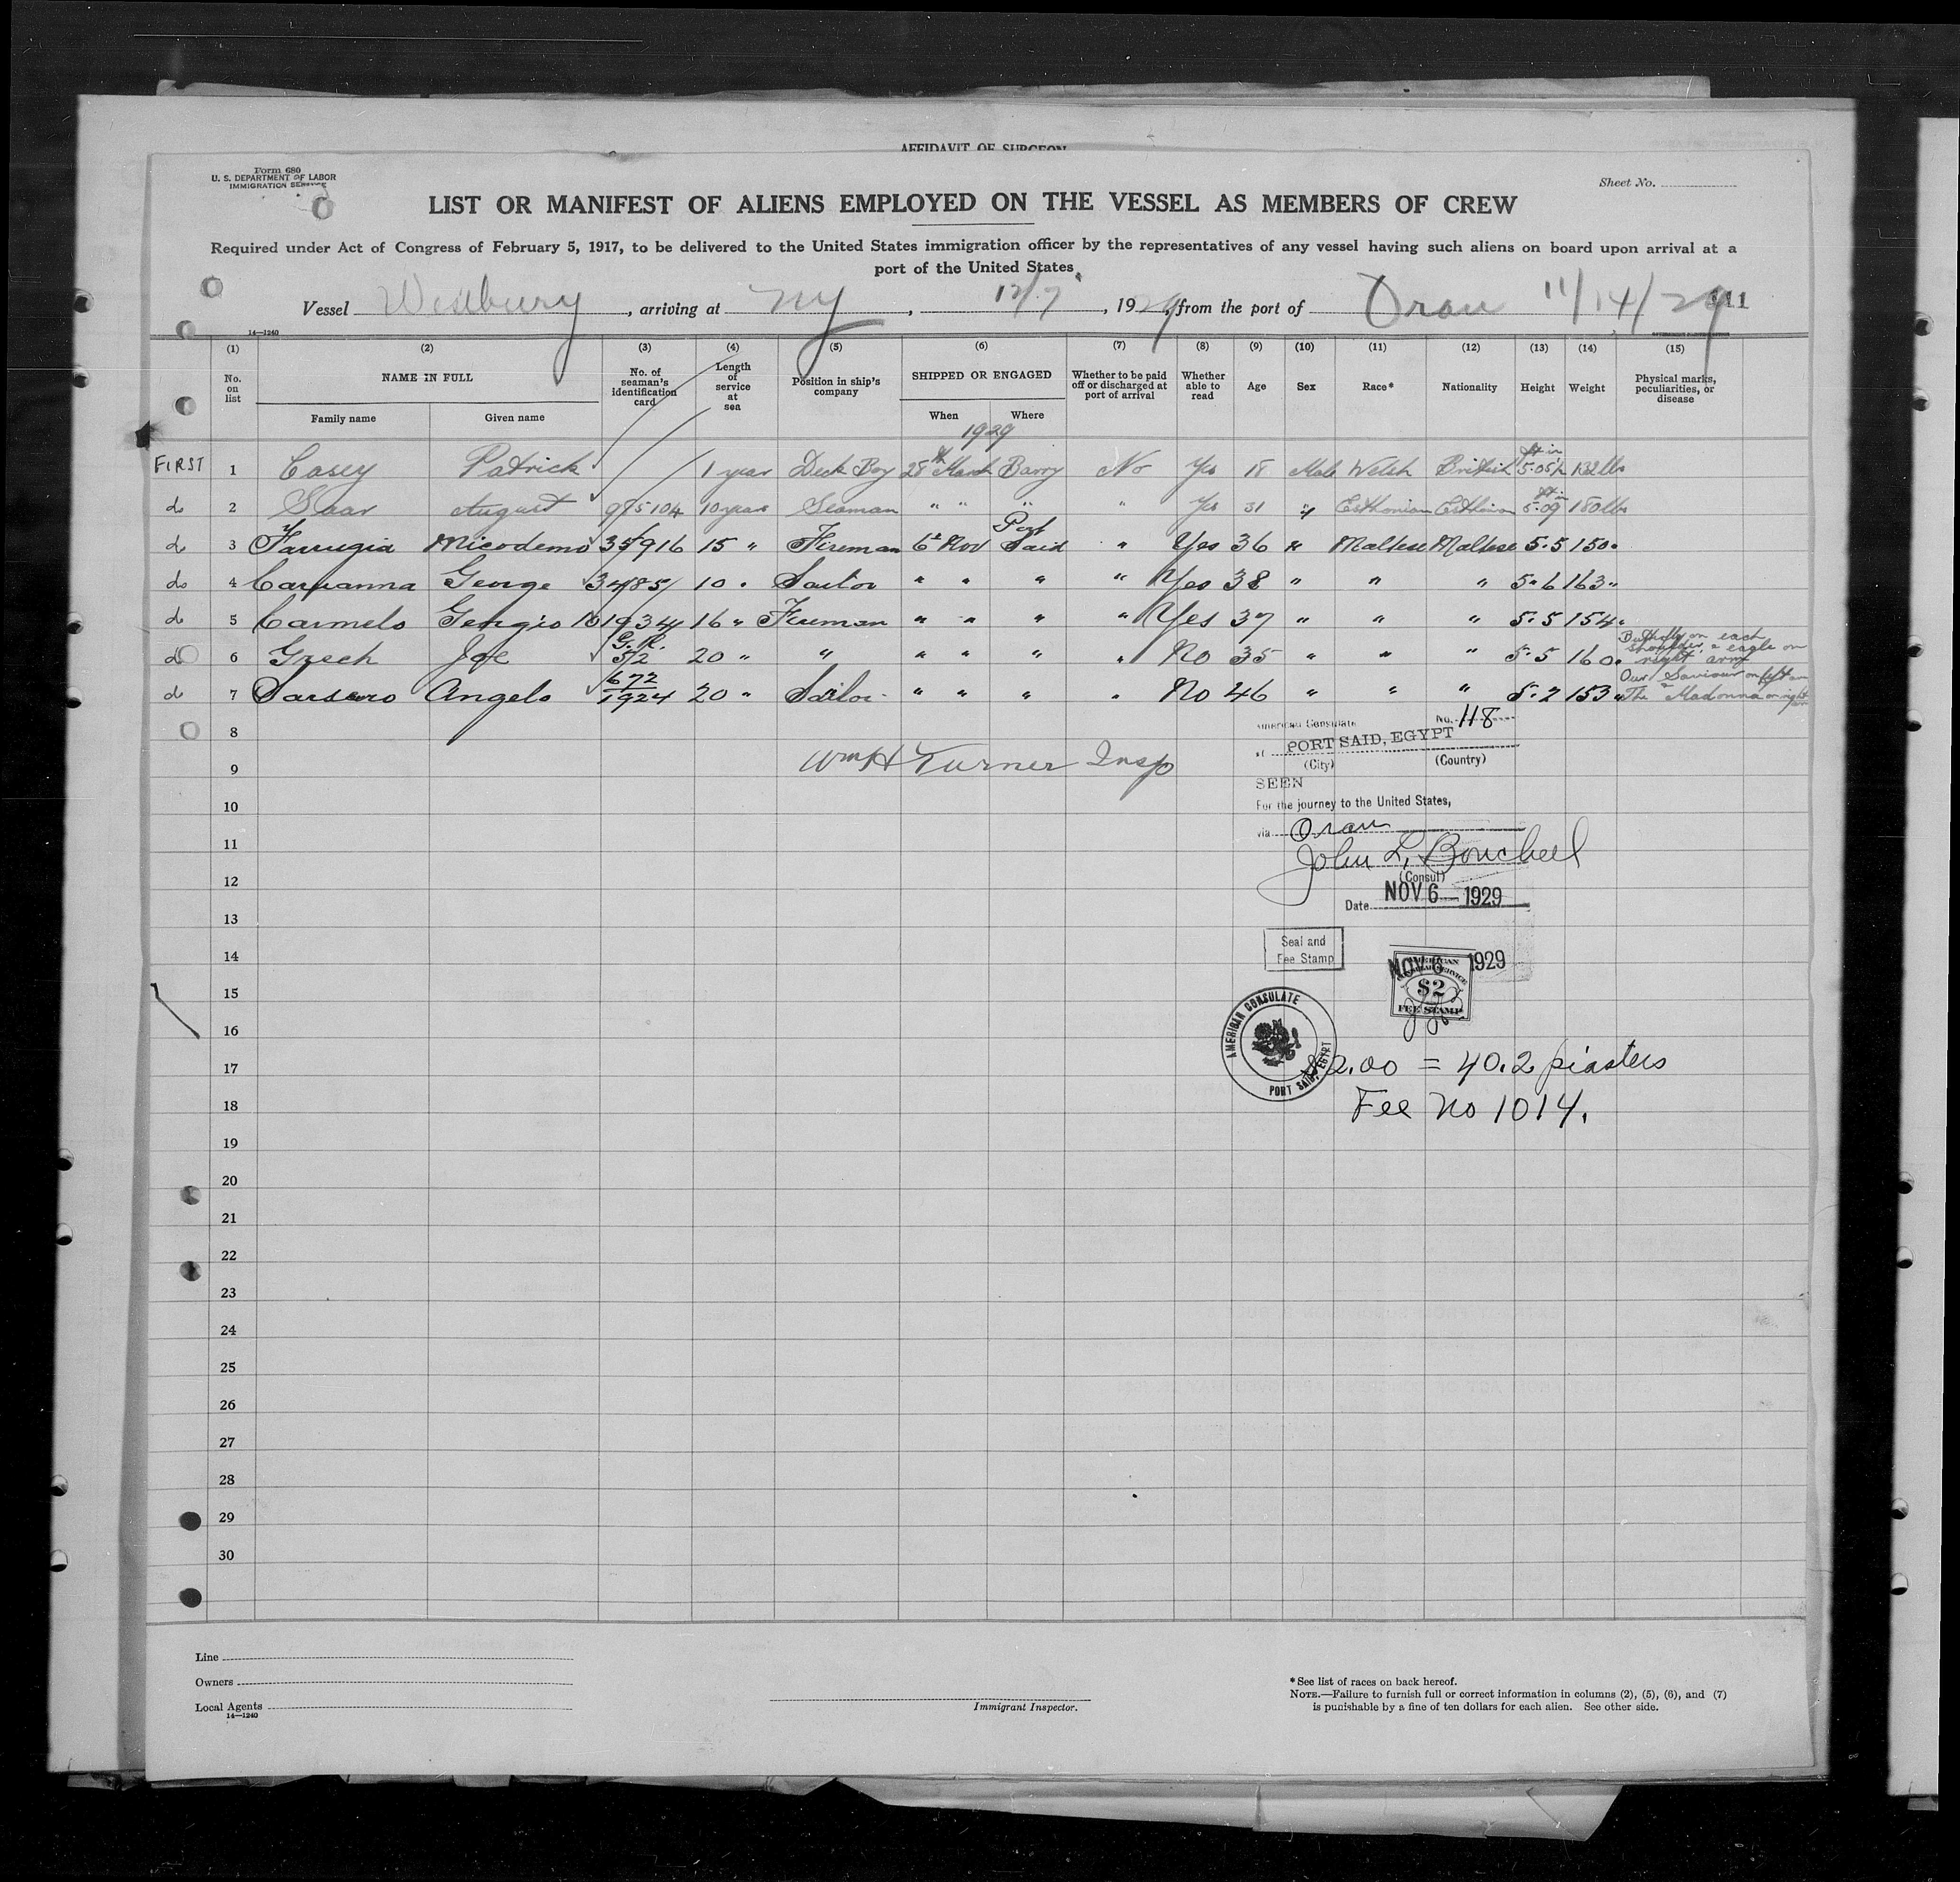 AFFIDAVIT OF SURGEON
Form 680
U. S. DEPARTMENT OF LABOR
IMMIGRATION SERVICE
Sheet No.
LIST OR MANIFEST OF ALIENS EMPLOYED ON THE VESSEL AS MEMBERS OF CREW
Required under Act of Congress of February 5, 1917, to be delivered to the United States immigration officer by the representatives of any vessel having such aliens on board upon arrival at a
port of the United States
Vessel Westbury, arriving at NY, 12/7, 1929, from the port of Oran 11/14/29
14—1240
(1) (2) (3) (4) (5) (6) (7) (8) (9) (10) (11) (12) (13) (14) (15)
No. on list NAME IN FULL No. of seaman's identification card Length of service at sea Position in ship's company SHIPPED OR ENGAGED Whether to be paid off or discharged at port of arrival Whether able to read Age Sex Race* Nationality Height Weight Physical marks, peculiarities, or disease
Family name Given name When Where
1929
FIRST 1 Casey Patrick 1 year Deck Boy 28th March Barry No Yes 18 Male Welsh British ft in 5.05½ 132 lbs
do 2 Saar August 975104 10 years Seaman " " " " Yes 31 " Esthonian Esthonian ft in 5.09 180 lbs
do 3 Farrugia Nicodemo 35916 15 " Fireman 6th Nov Port Said " Yes 36 " Maltese Maltese 5.5 150 "
do 4 Caruanna George 3485 10 " Sailor " " " " Yes 38 " " " 5.6 163 "
do 5 Carmelo Gengio 101934 16 " Fireman " " " " Yes 37 " " " 5.5 154 "
do 6 Grech Joe G.R. 572 20 " " " " " " No 35 " " " 5.5 160 " Butterfly on each shoulder, & eagle on right arm
do 7 Angelo 672/1924 20 " Sailor " " " " No 46 " " " 5.2 153 " Our Saviour on left arm The Madonna on right arm
8
9
10
11
12
13
14
15
16
17
18
19
20
21
22
23
24
25
26
27
28
29
30
Wm H Turner Insp
American Consulate No. 118
at PORT SAID, EGYPT
(City) (Country)
SEEN
For the journey to the United States,
via Oran
John L. Bouchal
(Consul)
Date NOV 6 — 1929
Seal and
Fee Stamp
NOV 6 1929
AMERICAN
SERVICE
$2
FEE STAMP
AMERICAN CONSULATE
PORT SAID, EGYPT
$2.00 = 40.2 piasters
Fee No 1014.
Line
Owners
Local Agents
14—1240
Immigrant Inspector.
*See list of races on back hereof.
NOTE.—Failure to furnish full or correct information in columns (2), (5), (6), and (7)
is punishable by a fine of ten dollars for each alien. See other side.